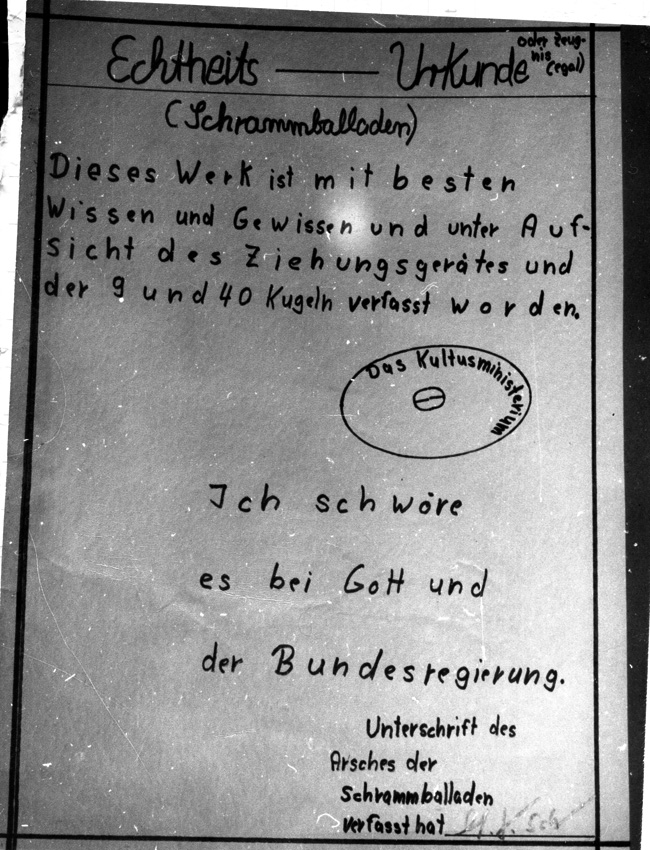 Echtheits — Urkunde oder Zeug-
nis (egal)
(Schrammballaden)
Dieses Werk ist mit besten
Wissen und Gewissen und unter Auf-
sicht des Ziehungsgerätes und
der 9 und 40 Kugeln verfasst worden.
Das Kultusministerium
Ich schwöre
es bei Gott und
der Bundesregierung.
Unterschrift des
Arsches der
Schrammballaden
verfasst hat